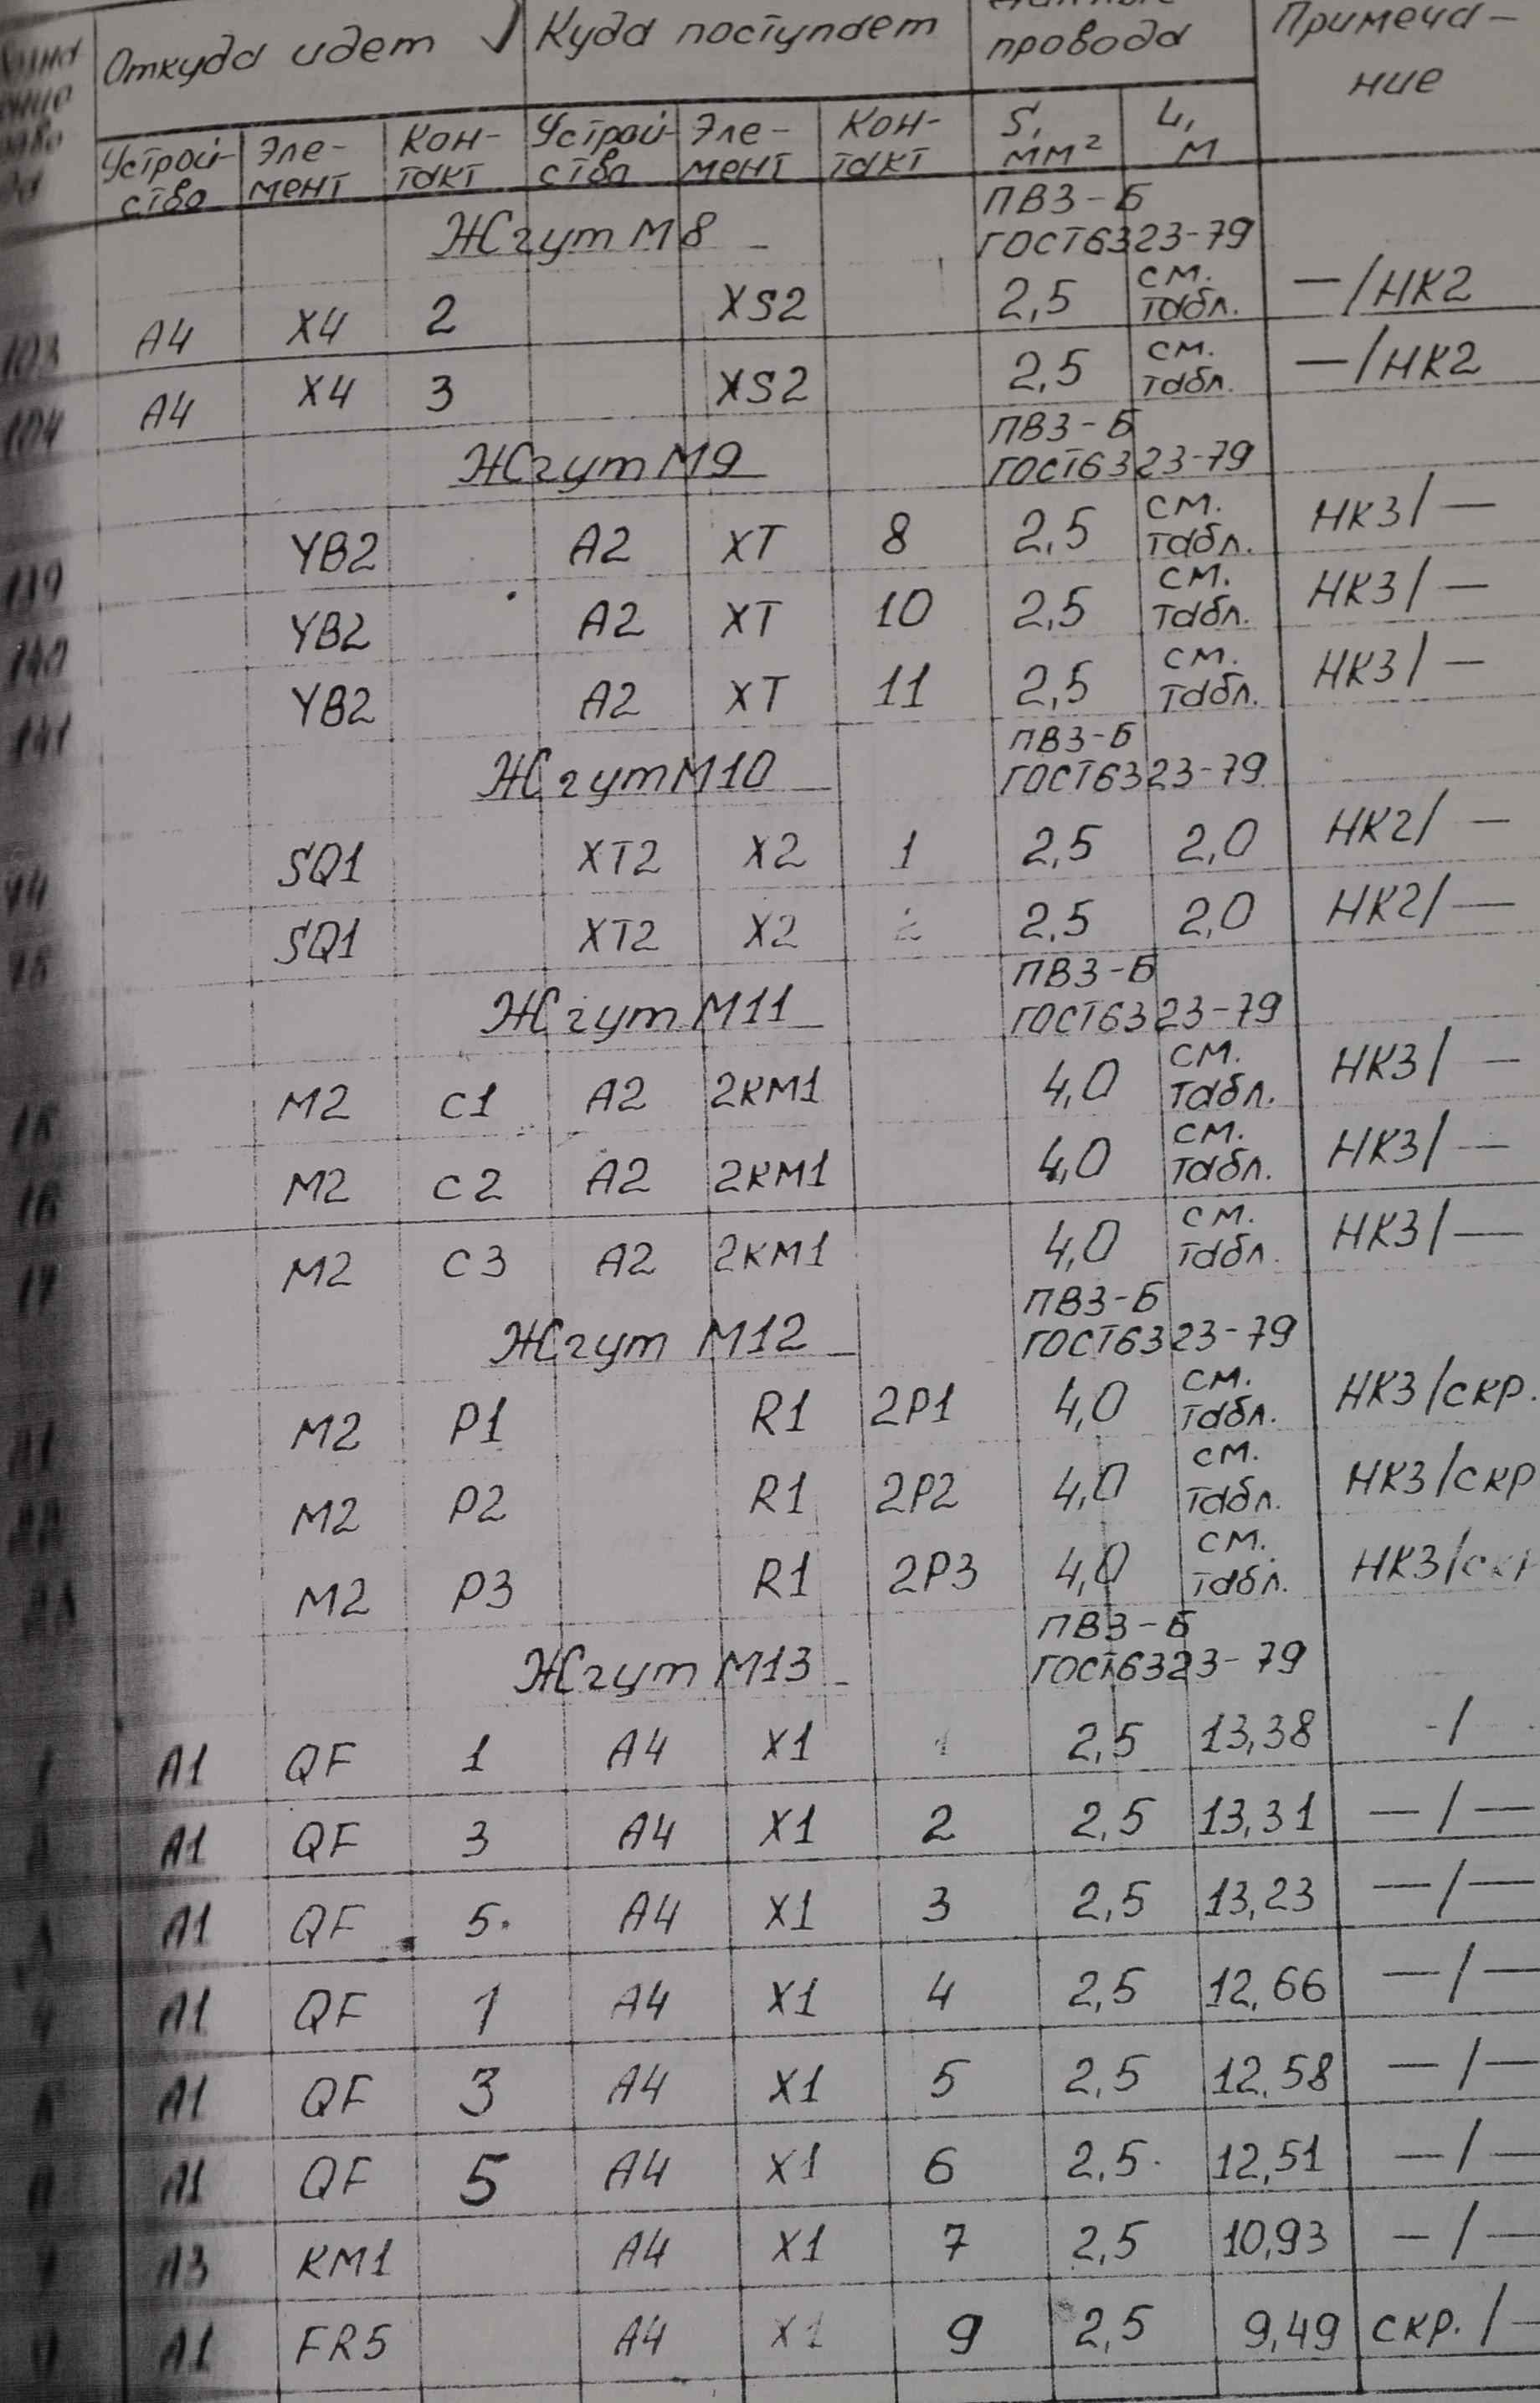 Откуда идет Куда поступает провода Примеча-
ние
Устрой-
ство Эле-
мент Кон-
такт Устрой-
ство Эле-
мент Кон-
такт S,
мм² L,
м
Жгут М8 ПВ3-Б
ГОСТ6323-79
103 А4 X4 2 XS2 2,5 см.
табл. —/НК2
104 А4 X4 3 XS2 2,5 см.
табл. —/НК2
Жгут М9 ПВ3-Б
ГОСТ6323-79
139 YB2 А2 XT 8 2,5 см.
табл. НК3/—
140 YB2 А2 XT 10 2,5 см.
табл. НК3/—
141 YB2 А2 XT 11 2,5 см.
табл. НК3/—
Жгут М10 ПВ3-Б
ГОСТ6323-79
SQ1 XT2 X2 1 2,5 2,0 НК2/—
SQ1 XT2 X2 2 2,5 2,0 НК2/—
Жгут М11 ПВ3-Б
ГОСТ6323-79
М2 С1 А2 2КМ1 4,0 см.
табл. НК3/—
М2 С2 А2 2КМ1 4,0 см.
табл. НК3/—
М2 С3 А2 2КМ1 4,0 см.
табл. НК3/—
Жгут М12 ПВ3-Б
ГОСТ6323-79
М2 Р1 R1 2Р1 4,0 см.
табл. НК3/скр.
М2 Р2 R1 2Р2 4,0 см.
табл. НК3/скр
М2 Р3 R1 2Р3 4,0 см.
табл. НК3/скр
Жгут М13 ПВ3-Б
ГОСТ6323-79
А1 QF 1 А4 X1 1 2,5 13,38 -/
А1 QF 3 А4 X1 2 2,5 13,31 —/—
А1 QF 5. А4 X1 3 2,5 13,23 —/—
А1 QF 1 А4 X1 4 2,5 12,66 —/—
А1 QF 3 А4 X1 5 2,5 12,58 —/—
А1 QF 5 А4 X1 6 2,5 12,51 —/—
А3 КМ1 А4 X1 7 2,5 10,93 —/—
А1 FR5 А4 X1 9 2,5 9,49 скр./—